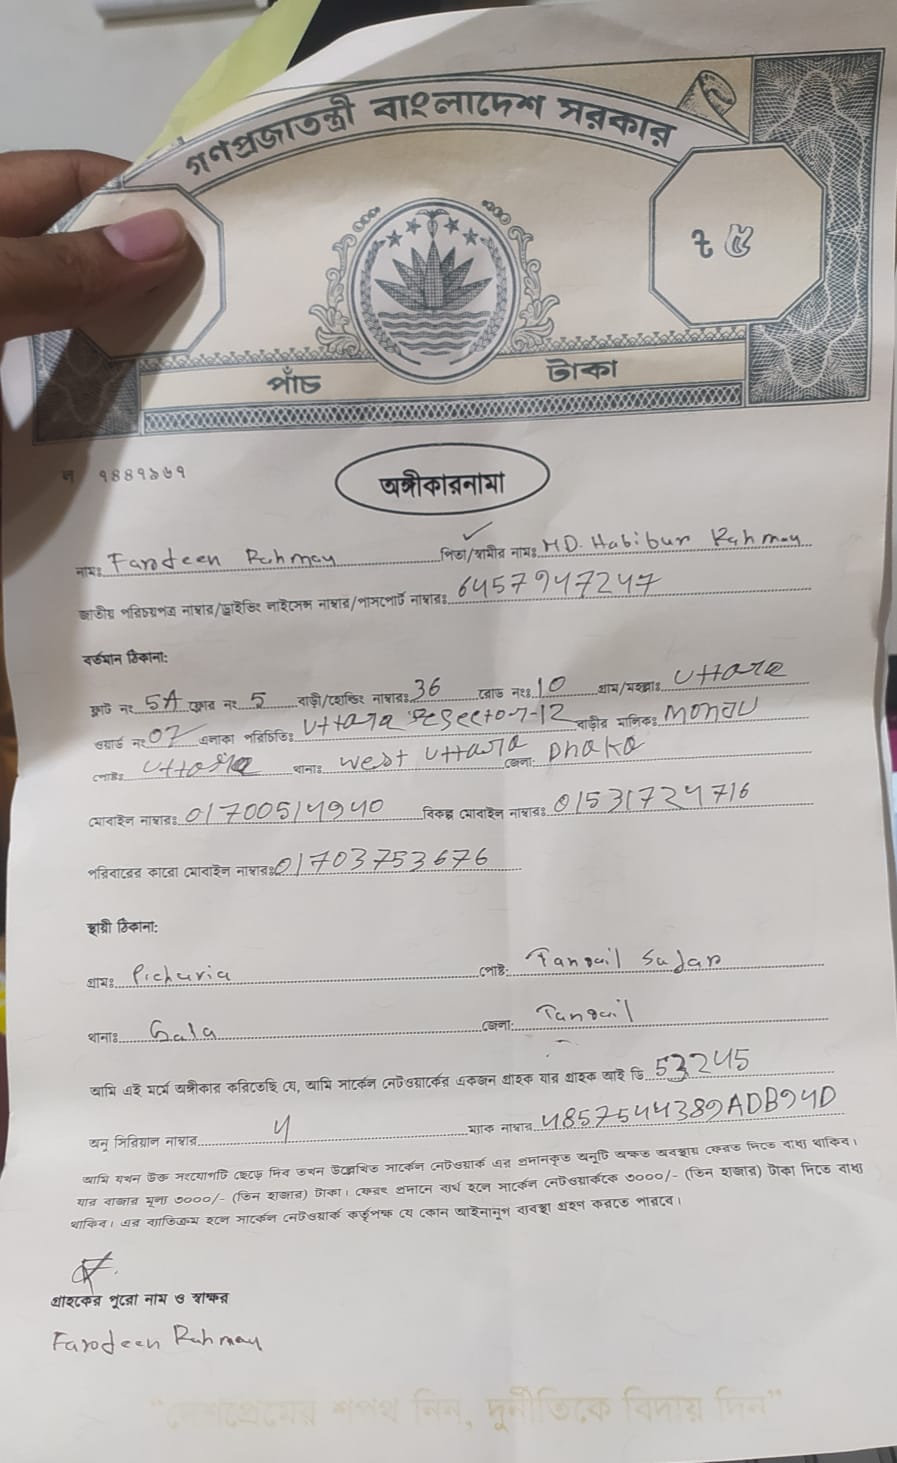 গণপ্রজাতন্ত্রী বাংলাদেশ সরকার
৳ ৫
পাঁচ টাকা
ন ৭৪৪৭৯৬৭
অঙ্গীকারনামা
নামঃ Fardeen Rahman পিতা/স্বামীর নামঃ MD. Habibur Rahman
জাতীয় পরিচয়পত্র নাম্বার/ড্রাইভিং লাইসেন্স নাম্বার/পাসপোর্ট নাম্বারঃ 6457947247
বর্তমান ঠিকানা:
ফ্লাট নং 5A ফ্লোর নং 5 বাড়ী/হোল্ডিং নাম্বারঃ 36 রোড নংঃ 10 গ্রাম/মহল্লাঃ Uttara
ওয়ার্ড নং 07 এলাকা পরিচিতিঃ Uttara Sector-12 বাড়ীর মালিকঃ Monju
পোষ্টঃ Uttara থানাঃ West Uttara জেলা: Dhaka
মোবাইল নাম্বারঃ 01700514940 বিকল্প মোবাইল নাম্বারঃ 01531724716
পরিবারের কারো মোবাইল নাম্বারঃ 01703753676
স্থায়ী ঠিকানা:
গ্রামঃ Picharia পোষ্ট: Tangail Sadar
থানাঃ Gala জেলা: Tangail
আমি এই মর্মে অঙ্গীকার করিতেছি যে, আমি সার্কেল নেটওয়ার্কের একজন গ্রাহক যার গ্রাহক আই ডি 53245
অনু সিরিয়াল নাম্বার 4 ম্যাক নাম্বার 4857544389ADB94D
আমি যখন উক্ত সংযোগটি ছেড়ে দিব তখন উল্লেখিত সার্কেল নেটওয়ার্ক এর প্রদানকৃত অনুটি অক্ষত অবস্থায় ফেরত দিতে বাধ্য থাকিব।
যার বাজার মূল্য ৩০০০/- (তিন হাজার) টাকা। ফেরৎ প্রদানে ব্যর্থ হলে সার্কেল নেটওয়ার্ককে ৩০০০/- (তিন হাজার) টাকা দিতে বাধ্য
থাকিব। এর ব্যতিক্রম হলে সার্কেল নেটওয়ার্ক কর্তৃপক্ষ যে কোন আইনানুগ ব্যবস্থা গ্রহণ করতে পারবে।
গ্রাহকের পুরো নাম ও স্বাক্ষর
Fardeen Rahman
"দেশপ্রেমের শপথ নিন, দুর্নীতিকে বিদায় দিন"